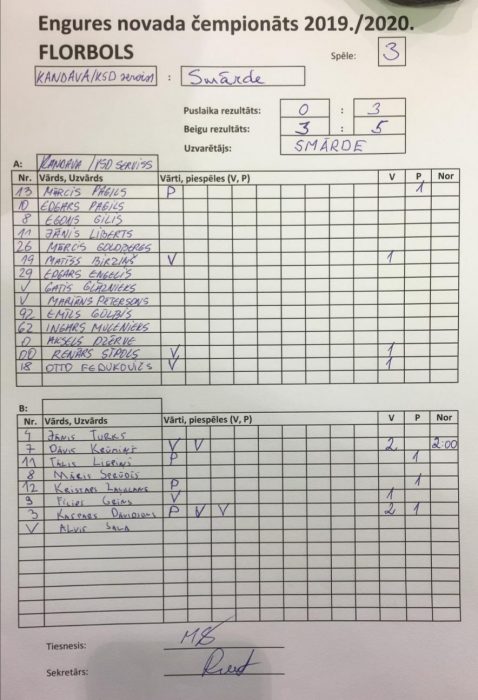 Engures novada čempionāts 2019./2020.
FLORBOLS
Spēle: 3
KANDAVA/KSD serviss : Smārde
Puslaika rezultāts: 0 : 3
Beigu rezultāts: 3 : 5
Uzvarētājs: SMĀRDE
A: KANDAVA/KSD SERVISS
Nr. Vārds, Uzvārds Vārti, piespēles (V, P) V P Nor
13 MĀRCIS PAGILS P 1
10 EDGARS PAGILS
8 EGONS GILIS
11 JĀNIS LĪBERTS
26 MĀRCIS
19 MATĪSS BIRZIŅŠ V 1
29 EDGARS ENGELIS
V GATIS GLĀZNIEKS
V MARIĀNS PETERSONS
92 EMĪLS GULBIS
62 INGARS MUCENIEKS
0 AKSELS DZĒRVE
00 RENĀRS V 1
18 OTTO FEDUKOVIČS V 1
B:
Nr. Vārds, Uzvārds Vārti, piespēles (V, P) V P Nor
4 JĀNIS TURKS
7 DĀVIS V V 2 2:00
11 P 1
8 MĀRIS
12 KRISTAPS P 1
9 V 1
3 KASPARS DĀVIDSONS P V V 2 1
V ALVIS SALA
Tiesnesis:
Sekretārs: